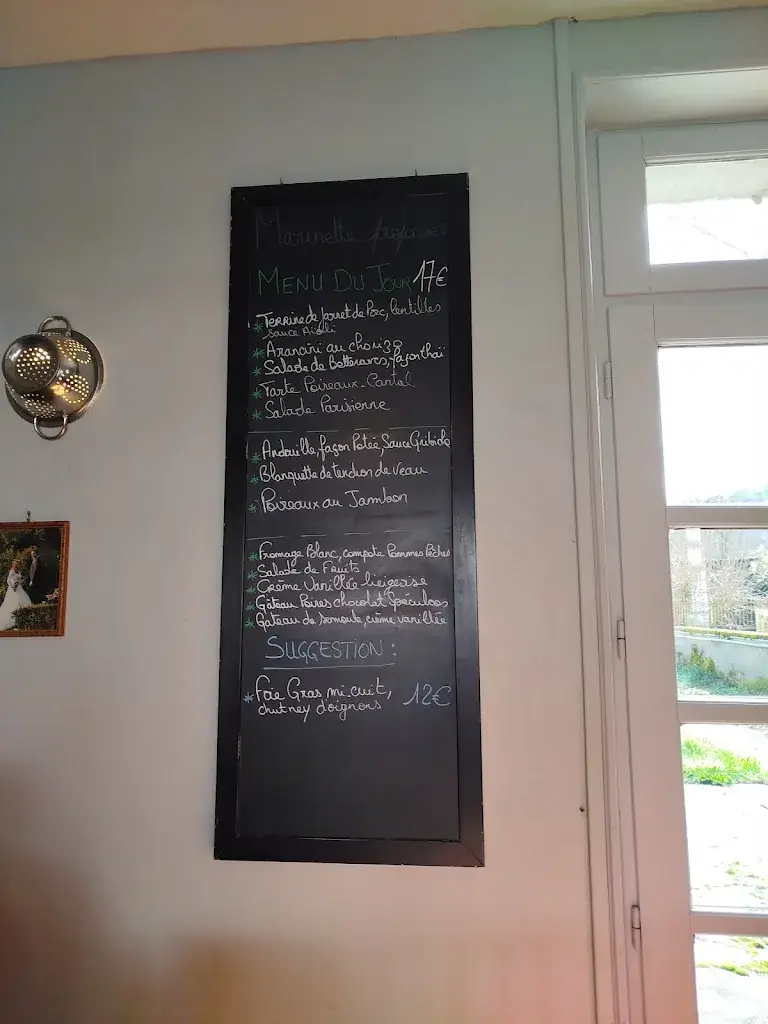 Marinette propose
MENU DU JOUR 17€
* Terrine de jouet de Porc, lentilles
sauce Aïoli
* Arancini au chorizo
* Salade de Betteraves, façon thaï
* Tarte Poireaux-Cantal
* Salade Parisienne
* Andouille, façon Potée, Sauce Gribiche
* Blanquette de tendron de veau
* Poireaux au Jambon
* Fromage Blanc, compote Pommes Pêches
* Salade de Fruits
* Crème Vanillée liégeoise
* Gâteau Poires chocolat Spéculoos
* Gateau de semoule, crème vanillée
SUGGESTION :
* Foie Gras mi-cuit, 12€
chutney d'oignons